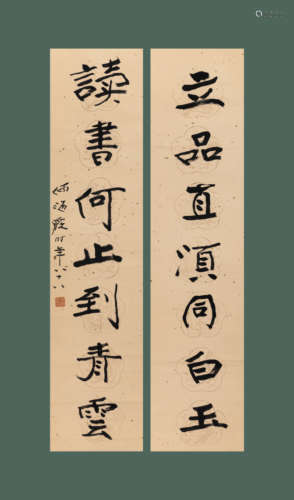 立品直須同白玉
讀書何止到青雲
時年八十八